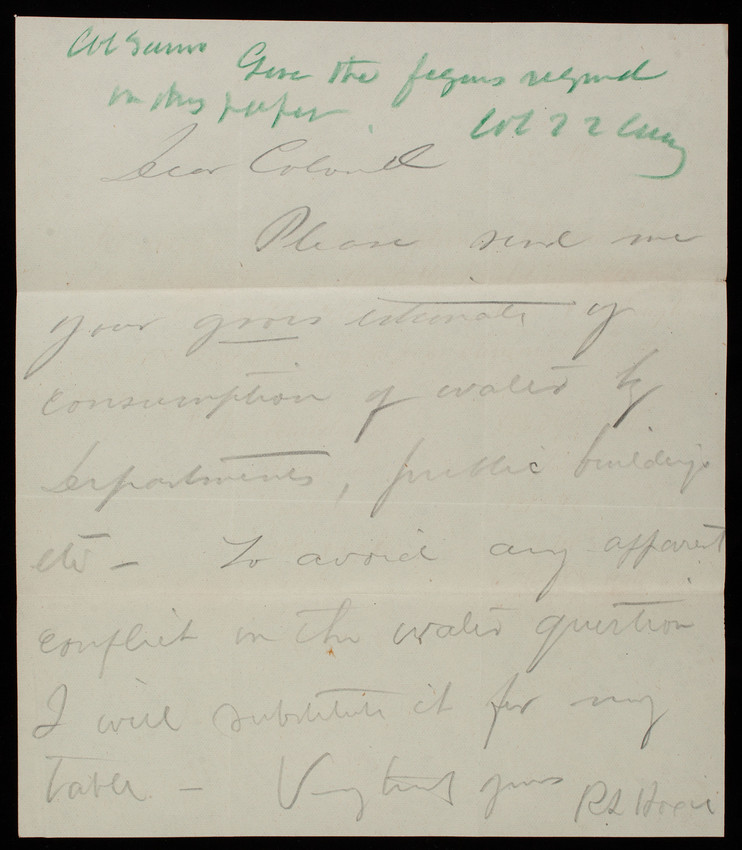 Give the figures required
on this paper.
Dear Colonel
Please send me
your gross estimate of
consumption of water by
Departments, public buildings
etc – To avoid any apparent
conflict in the water question
I will substitute it for my
table. – Very truly yours R L Hoxie